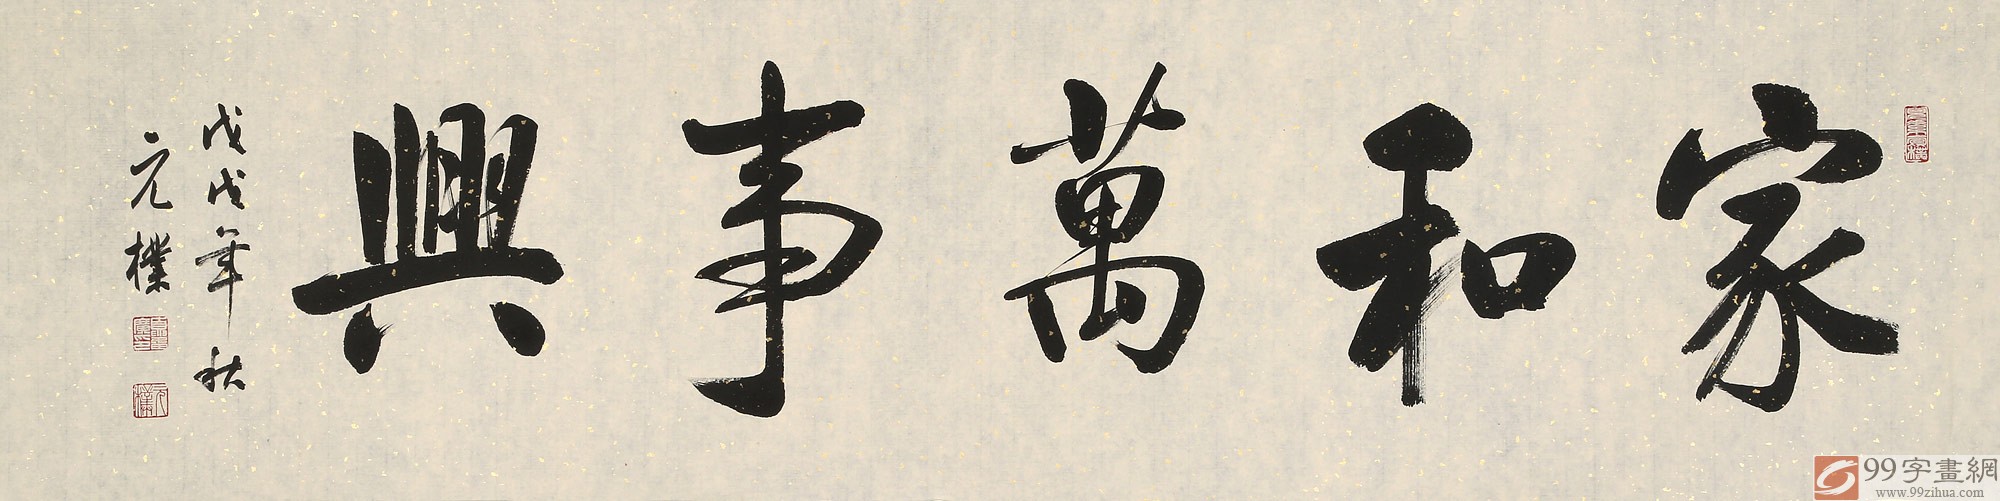 家和萬事興
戊戌年秋
元樸
99字畫網
www.99zihua.com